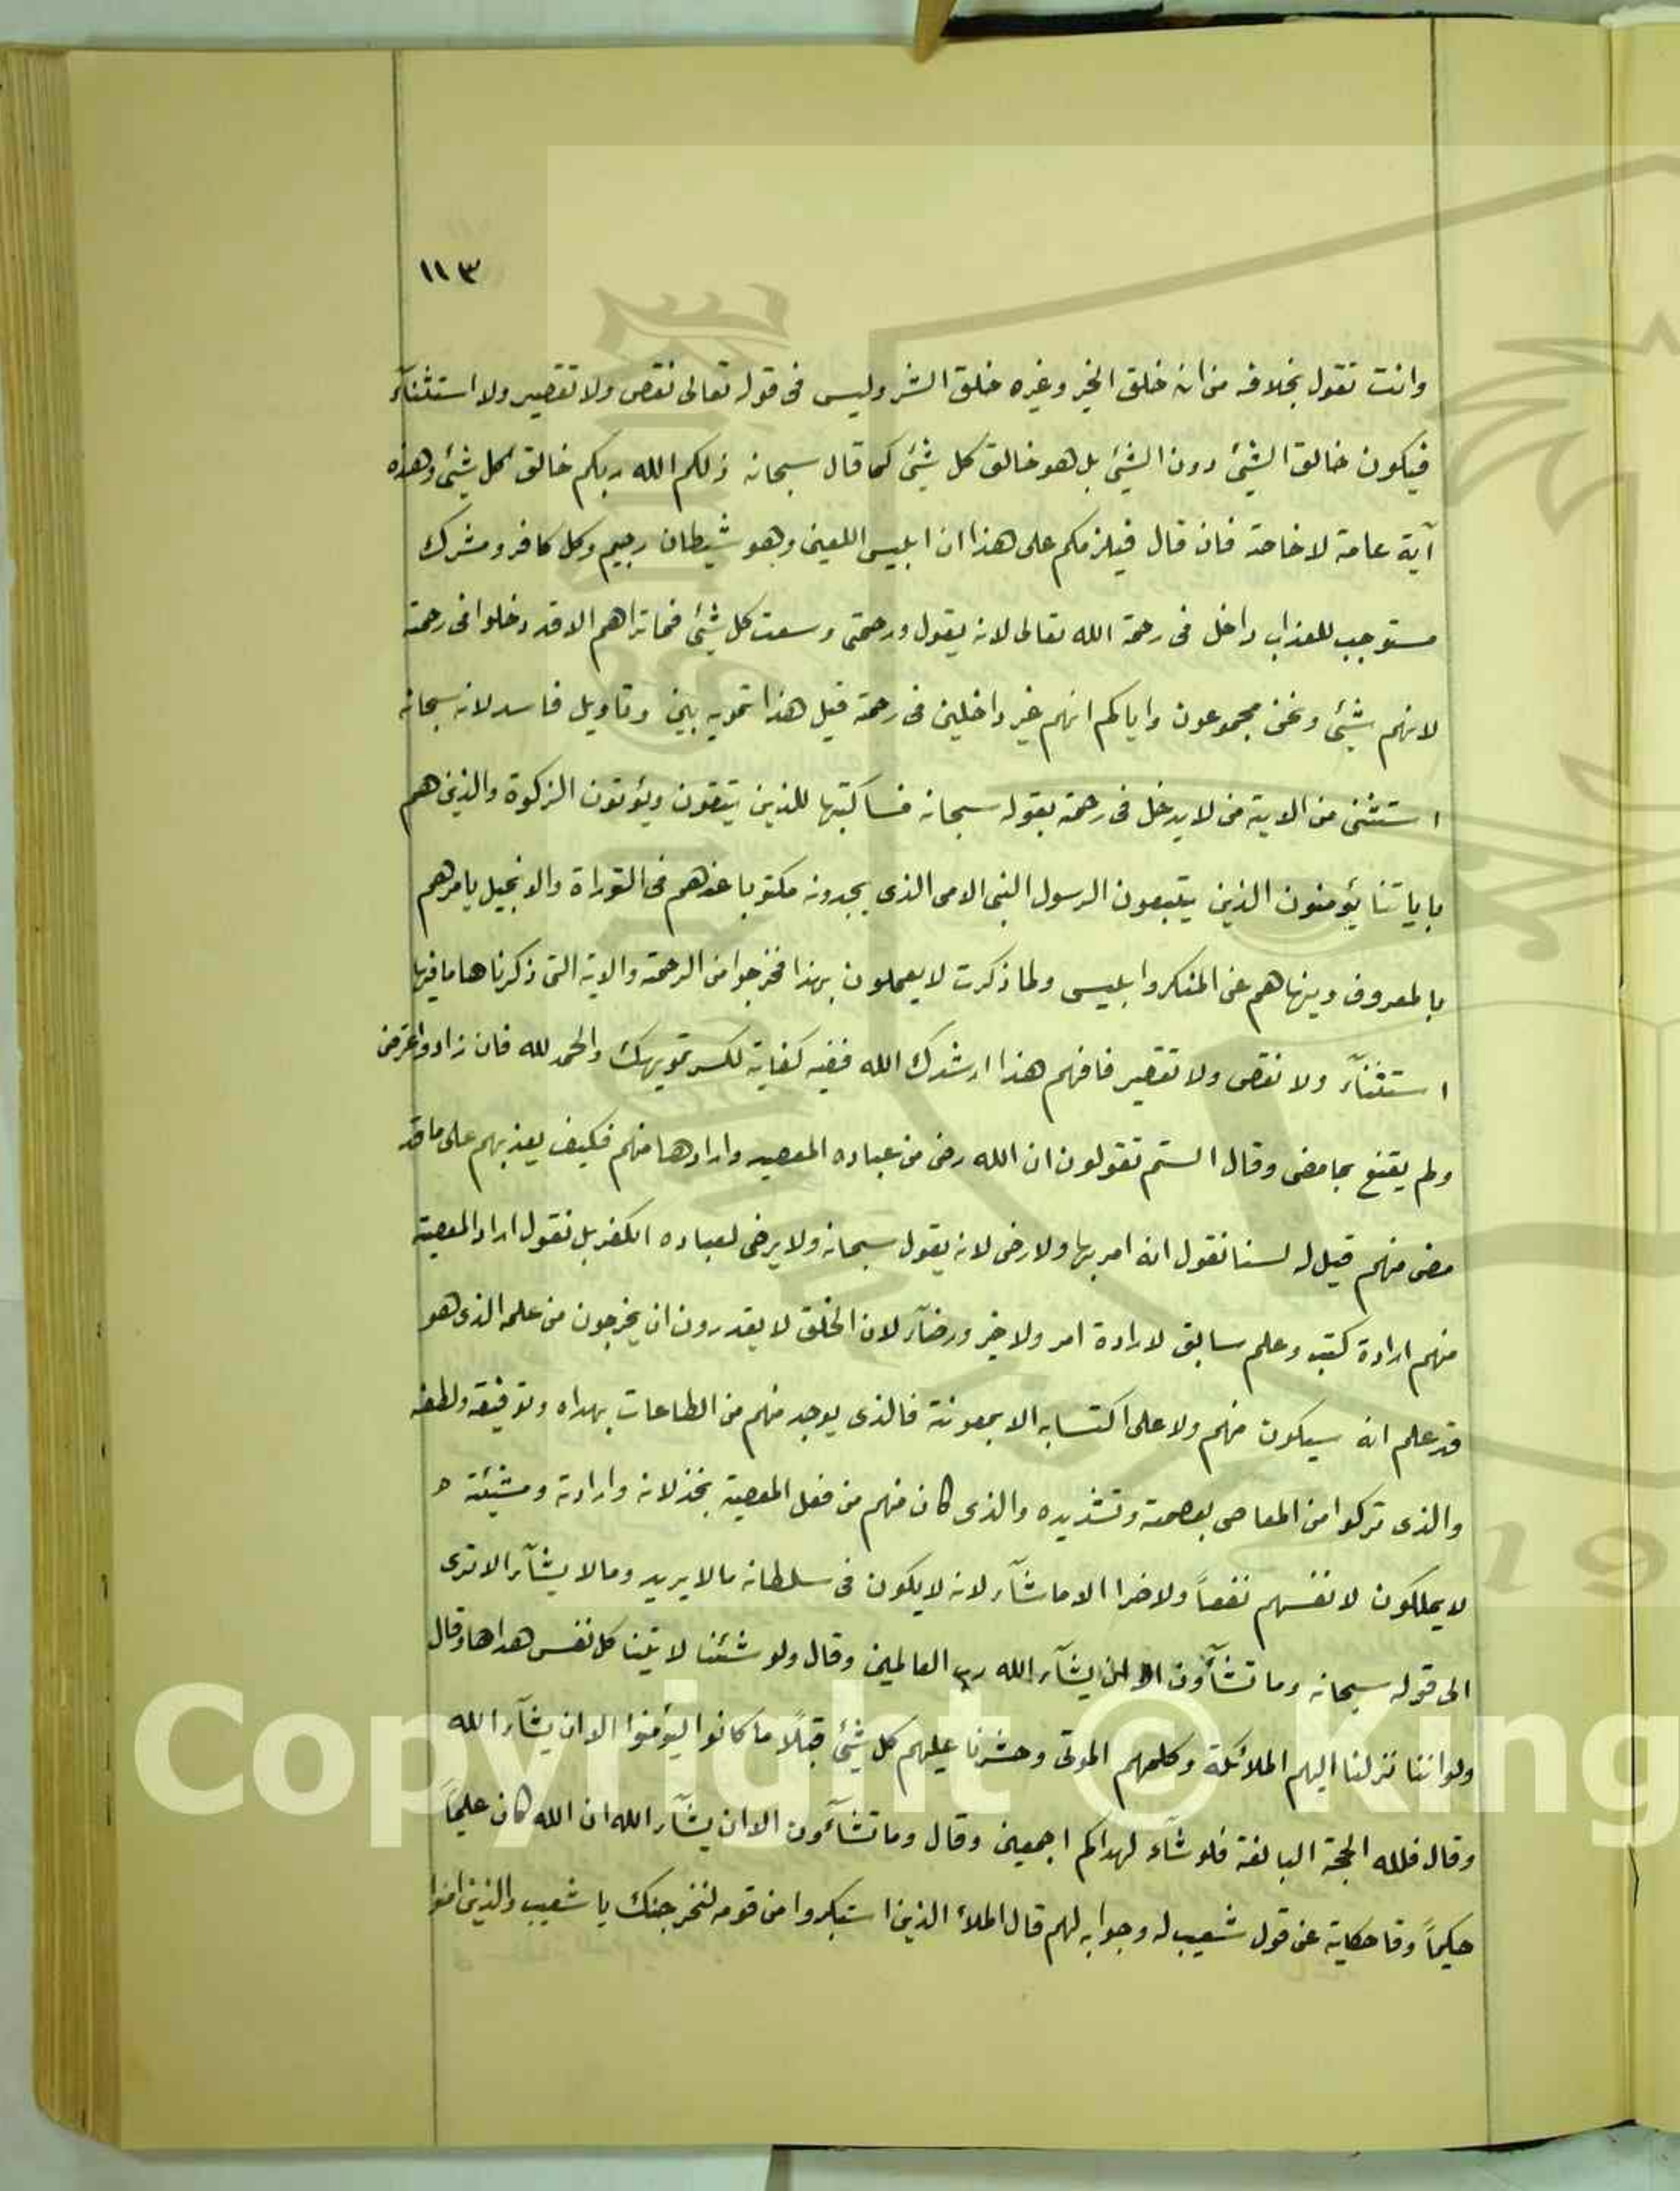 ١١٣
وانت تقول بخلافه من انه خلق الخير وغيره خلق الشر وليس فى قوله تعالى نقص ولا تقصير ولا استثنآء
فيكون خالق الشيئ دون الشيئ بل هو خالق كل شيئ كما قال سبحانه ذلكم الله ربكم خالق كل شيئ وهذه
آية عامة لا خاصة فان قال فيلزمكم على هذا ان ابليس اللعين وهو شيطان رجيم وكل كافر ومشرك
مستوجب للعذاب داخل فى رحمة الله تعالى لانه يقول ورحمتى وسعت كل شيئ فما تراهم الا قد دخلوا فى رحمته
لانهم شيئ ونحن مجموعون واياكم انهم غير داخلين فى رحمته قيل هذا تمويه بين وتاويل فاسد لانه سبحانه
استثنى من الاية من لا يدخل فى رحمته بقوله سبحانه فساكتبها للذين يتقون ويؤتون الزكوة والذين هم
باياتنا يؤمنون الذين يتبعون الرسول النبى الامى الذى يجدونه مكتوبا عندهم فى التوراة والانجيل يامرهم
بالمعروف وينهاهم عن المنكر وابليس ولما ذكرت لا يعملون بهذا فخرجوا من الرحمة والاية التى ذكرناها ما فيها
استثنآء ولا نقص ولا تقصير فافهم هذا ارشدك الله ففيه كفاية لكسر تمويهك والحمد لله فان زاد واعترض
ولم يقنع بما مضى وقال الستم تقولون ان الله رضى من عباده المعصيه وارادها منهم فكيف يعذبهم على ما قد
مضى منهم قيل له لسنا نقول انه امر بها ولا رضى لانه يقول سبحانه ولا يرضى لعباده الكفر بل نقول اراد المعصية
منهم ارادة كتب وعلم سابق لا رادة امر ولا خير ورضآء لان الخلق لا يقدرون ان يخرجون من علمه الذى هو
قد علم انه سيكون منهم ولا على اكتسابه الا بمعونة فالذى يوجد منهم من الطاعات بهداه وتوفيقه ولطفه
والذى تركوا من المعاصى بعصمته وتشديده والذى كان منهم من فعل المعصية بخذلانه وارادته ومشيئته ه
لا يملكون لانفسهم نفعاً ولا ضرا الا ما شآء لانه لا يكون فى سلطانه ما لا يريد وما لا يشآء الا ترى
الى قوله سبحانه وما تشآؤن الا ان يشآء الله رب العالمين وقال ولو شئنا لاتينا كل نفس هداها وقال
ولو اننا نزلنا اليهم الملائكة وكلمهم الموتى وحشرنا عليهم كل شيئ قبلًا ما كانوا ليؤمنوا الا ان يشآء الله
وقال فلله الحجة البالغة فلو شآء لهداكم اجمعين وقال وما تشآءون الا ان يشآء الله ان الله كان عليماً
حكيماً وقا حكاية عن قول شعيب له وجوابه لهم قال الملأ الذين استكبروا من قومه لنخرجنك يا شعيب والذين امنوا
Copyright © King